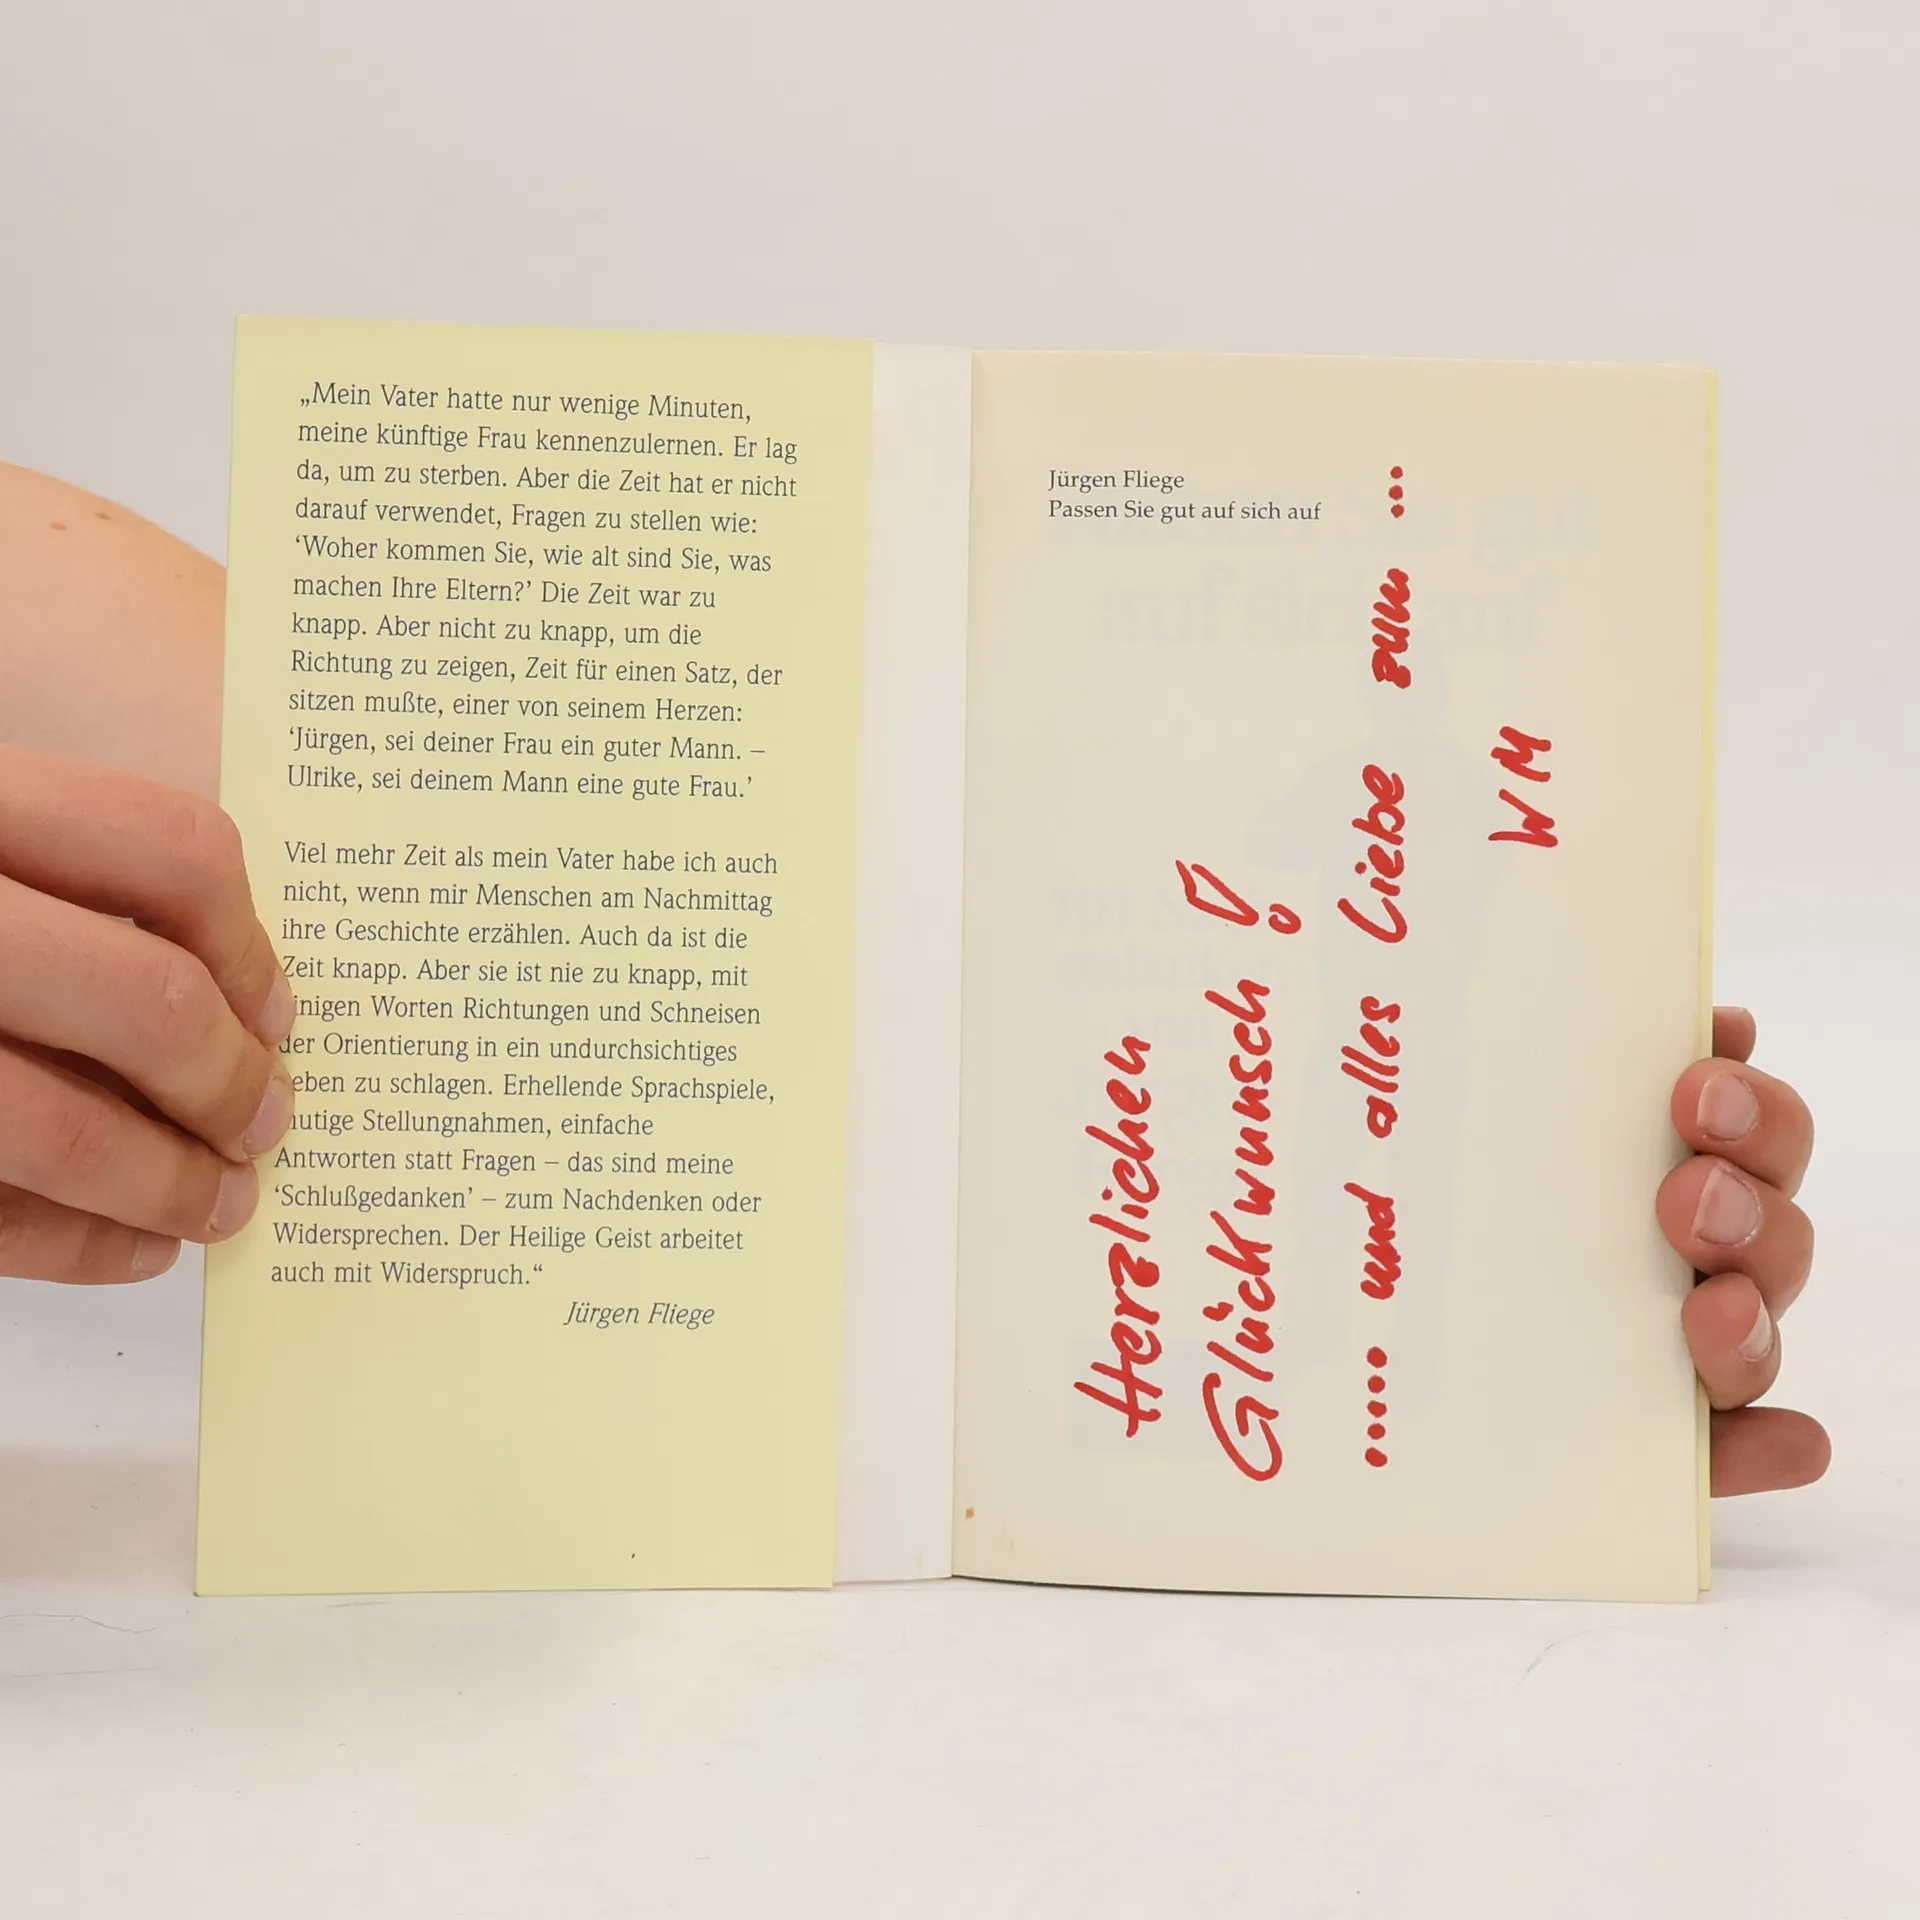 „Mein Vater hatte nur wenige Minuten,
meine künftige Frau kennenzulernen. Er lag
da, um zu sterben. Aber die Zeit hat er nicht
darauf verwendet, Fragen zu stellen wie:
‘Woher kommen Sie, wie alt sind Sie, was
machen Ihre Eltern?’ Die Zeit war zu
knapp. Aber nicht zu knapp, um die
Richtung zu zeigen, Zeit für einen Satz, der
sitzen mußte, einer von seinem Herzen:
‘Jürgen, sei deiner Frau ein guter Mann. –
Ulrike, sei deinem Mann eine gute Frau.’
Viel mehr Zeit als mein Vater habe ich auch
nicht, wenn mir Menschen am Nachmittag
ihre Geschichte erzählen. Auch da ist die
Zeit knapp. Aber sie ist nie zu knapp, mit
inigen Worten Richtungen und Schneisen
der Orientierung in ein undurchsichtiges
eben zu schlagen. Erhellende Sprachspiele,
utige Stellungnahmen, einfache
Antworten statt Fragen – das sind meine
‘Schlußgedanken’ – zum Nachdenken oder
Widersprechen. Der Heilige Geist arbeitet
auch mit Widerspruch.“
Jürgen Fliege
Jürgen Fliege
Passen Sie gut auf sich auf
Herzlichen
Glückwunsch!
..... und alles Liebe zum ...
WM